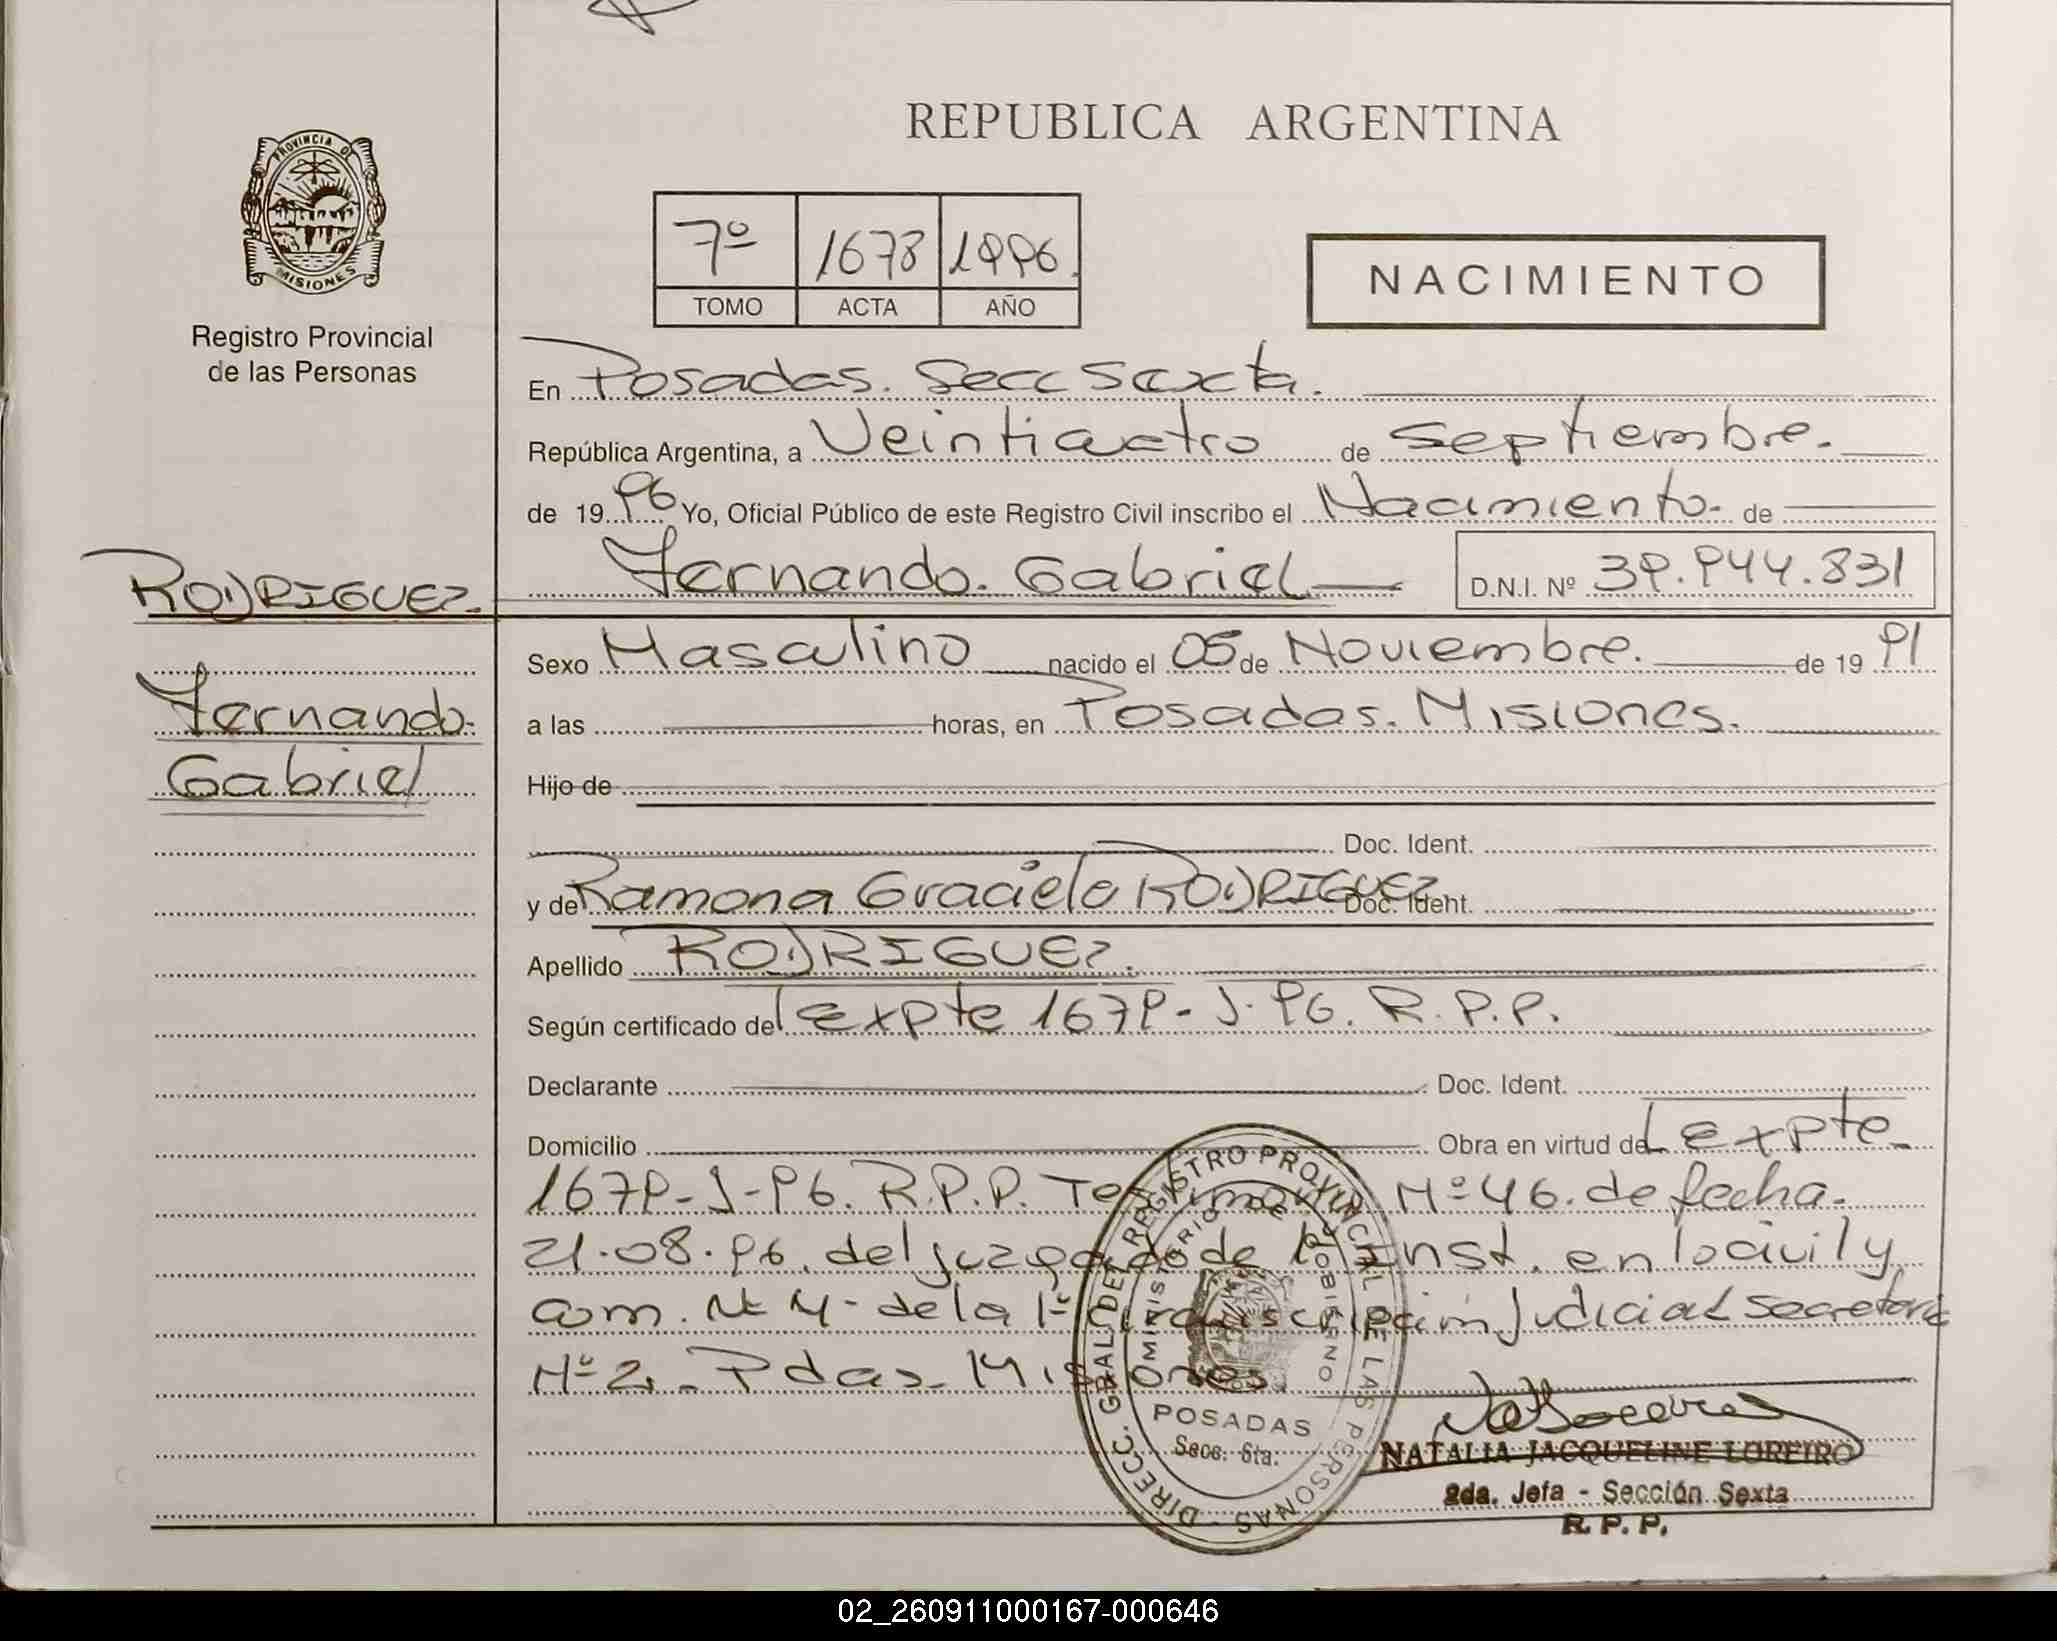 REPUBLICA ARGENTINA
PROVINCIA DE
MISIONES
Registro Provincial
de las Personas
7º 1678 1996.
TOMO ACTA AÑO
NACIMIENTO
En Posadas. Secc Sexta.
República Argentina, a Veinticuatro de Septiembre.
de 19 96 Yo, Oficial Público de este Registro Civil inscribo el Nacimiento. de
Fernando. Gabriel D.N.I. Nº 39.944.831
RODRIGUEZ.
Fernando.
Gabriel
Sexo Masculino nacido el 05 de Noviembre. de 19 91
a las horas, en Posadas. Misiones.
Hijo de
Doc. Ident.
y de Ramona Graciela RODRIGUEZ Doc. Ident.
Apellido RODRIGUEZ.
Según certificado del expte 1679-J-96. R.P.P.
Declarante Doc. Ident.
Domicilio Obra en virtud del expte
1679-J-96. R.P.P. Testimonio Nº 46. de fecha.
21.08.96. del juzgado de 1º Inst. en lo civil y
com. Nº 4- de la 1º circunscripción Judicial Secretaria
Nº 2. Pdas. Misiones.
DIREC. GRAL DEL REGISTRO PROVINCIAL DE LAS PERSONAS
MINISTERIO DE GOBIERNO
POSADAS
Secc. 6ta.
NATALIA JACQUELINE LOREIRO
2da. Jefa - Sección Sexta
R. P. P.
02_260911000167-000646